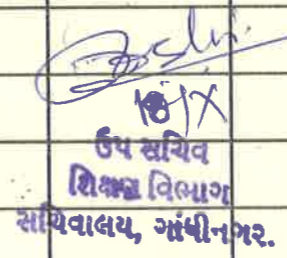 ઉપ સચિવ
શિક્ષણ વિભાગ
સચિવાલય, ગાંધીનગર.